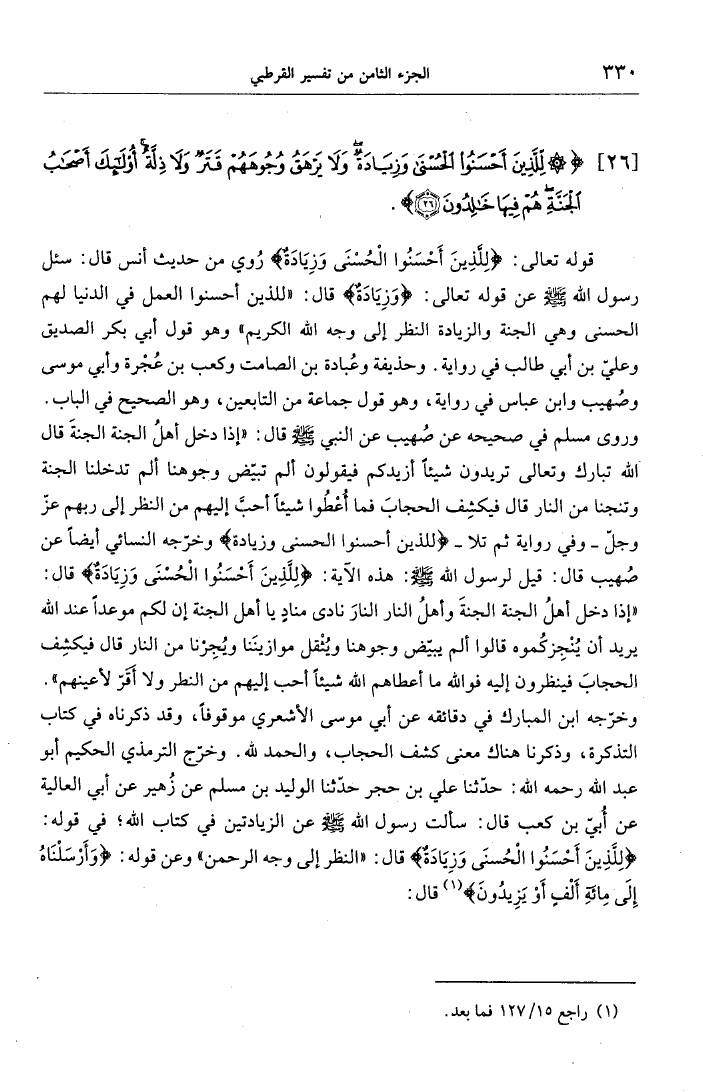 ٣٣٠ الجزء الثامن من تفسير القرطبي
[٢٦] ﴿ ۞ لِّلَّذِينَ أَحْسَنُوا۟ ٱلْحُسْنَىٰ وَزِيَادَةٌ ۖ وَلَا يَرْهَقُ وُجُوهَهُمْ قَتَرٌ وَلَا ذِلَّةٌ ۚ أُو۟لَٰٓئِكَ أَصْحَٰبُ
ٱلْجَنَّةِ ۖ هُمْ فِيهَا خَٰلِدُونَ ۝٢٦﴾ .
قوله تعالى: ﴿لِلَّذِينَ أَحْسَنُوا الْحُسْنَى وَزِيَادَةٌ﴾ رُوي من حديث أنس قال: سئل
رسول الله ﷺ عن قوله تعالى: ﴿وَزِيَادَةٌ﴾ قال: «للذين أحسنوا العمل في الدنيا لهم
الحسنى وهي الجنة والزيادة النظر إلى وجه الله الكريم» وهو قول أبي بكر الصديق
وعليّ بن أبي طالب في رواية. وحذيفة وعُبادة بن الصامت وكعب بن عُجْرة وأبي موسى
وصُهيب وابن عباس في رواية، وهو قول جماعة من التابعين، وهو الصحيح في الباب.
وروى مسلم في صحيحه عن صُهيب عن النبي ﷺ قال: «إذا دخل أهلُ الجنة الجنةَ قال
الله تبارك وتعالى تريدون شيئاً أزيدكم فيقولون ألم تبيّض وجوهنا ألم تدخلنا الجنة
وتنجنا من النار قال فيكشِف الحجابَ فما أُعْطُوا شيئاً أحبَّ إليهم من النظر إلى ربهم عزّ
وجلّ ـ وفي رواية ثم تلا ـ ﴿للذين أحسنوا الحسنى وزيادة﴾ وخرّجه النسائي أيضاً عن
صُهيب قال: قيل لرسول الله ﷺ: هذه الآية: ﴿لِلَّذِينَ أَحْسَنُوا الْحُسْنَى وَزِيَادَةٌ﴾ قال:
«إذا دخل أهلُ الجنة الجنةَ وأهلُ النار النارَ نادى منادٍ يا أهل الجنة إن لكم موعداً عند الله
يريد أن يُنْجِزكُموه قالوا ألم يبيّض وجوهنا ويُثْقل موازيننا ويُجِرْنا من النار قال فيكشِف
الحجابَ فينظرون إليه فوالله ما أعطاهم الله شيئاً أحب إليهم من النطر ولا أقرّ لأعينهم».
وخرّجه ابن المبارك في دقائقه عن أبي موسى الأشعري موقوفاً، وقد ذكرناه في كتاب
التذكرة، وذكرنا هناك معنى كشف الحجاب، والحمد لله. وخرّج الترمذي الحكيم أبو
عبد الله رحمه الله: حدّثنا علي بن حجر حدّثنا الوليد بن مسلم عن زُهير عن أبي العالية
عن أُبيّ بن كعب قال: سألت رسول الله ﷺ عن الزيادتين في كتاب الله؛ في قوله:
﴿لِلَّذِينَ أَحْسَنُوا الْحُسنَى وَزِيَادَةٌ﴾ قال: «النظر إلى وجه الرحمن» وعن قوله: ﴿وَأَرْسَلْنَاهُ
إِلَى مِائَةِ أَلْفٍ أَوْ يَزِيدُونَ﴾(١) قال:
(١) راجع ١٢٧/١٥ فما بعد.